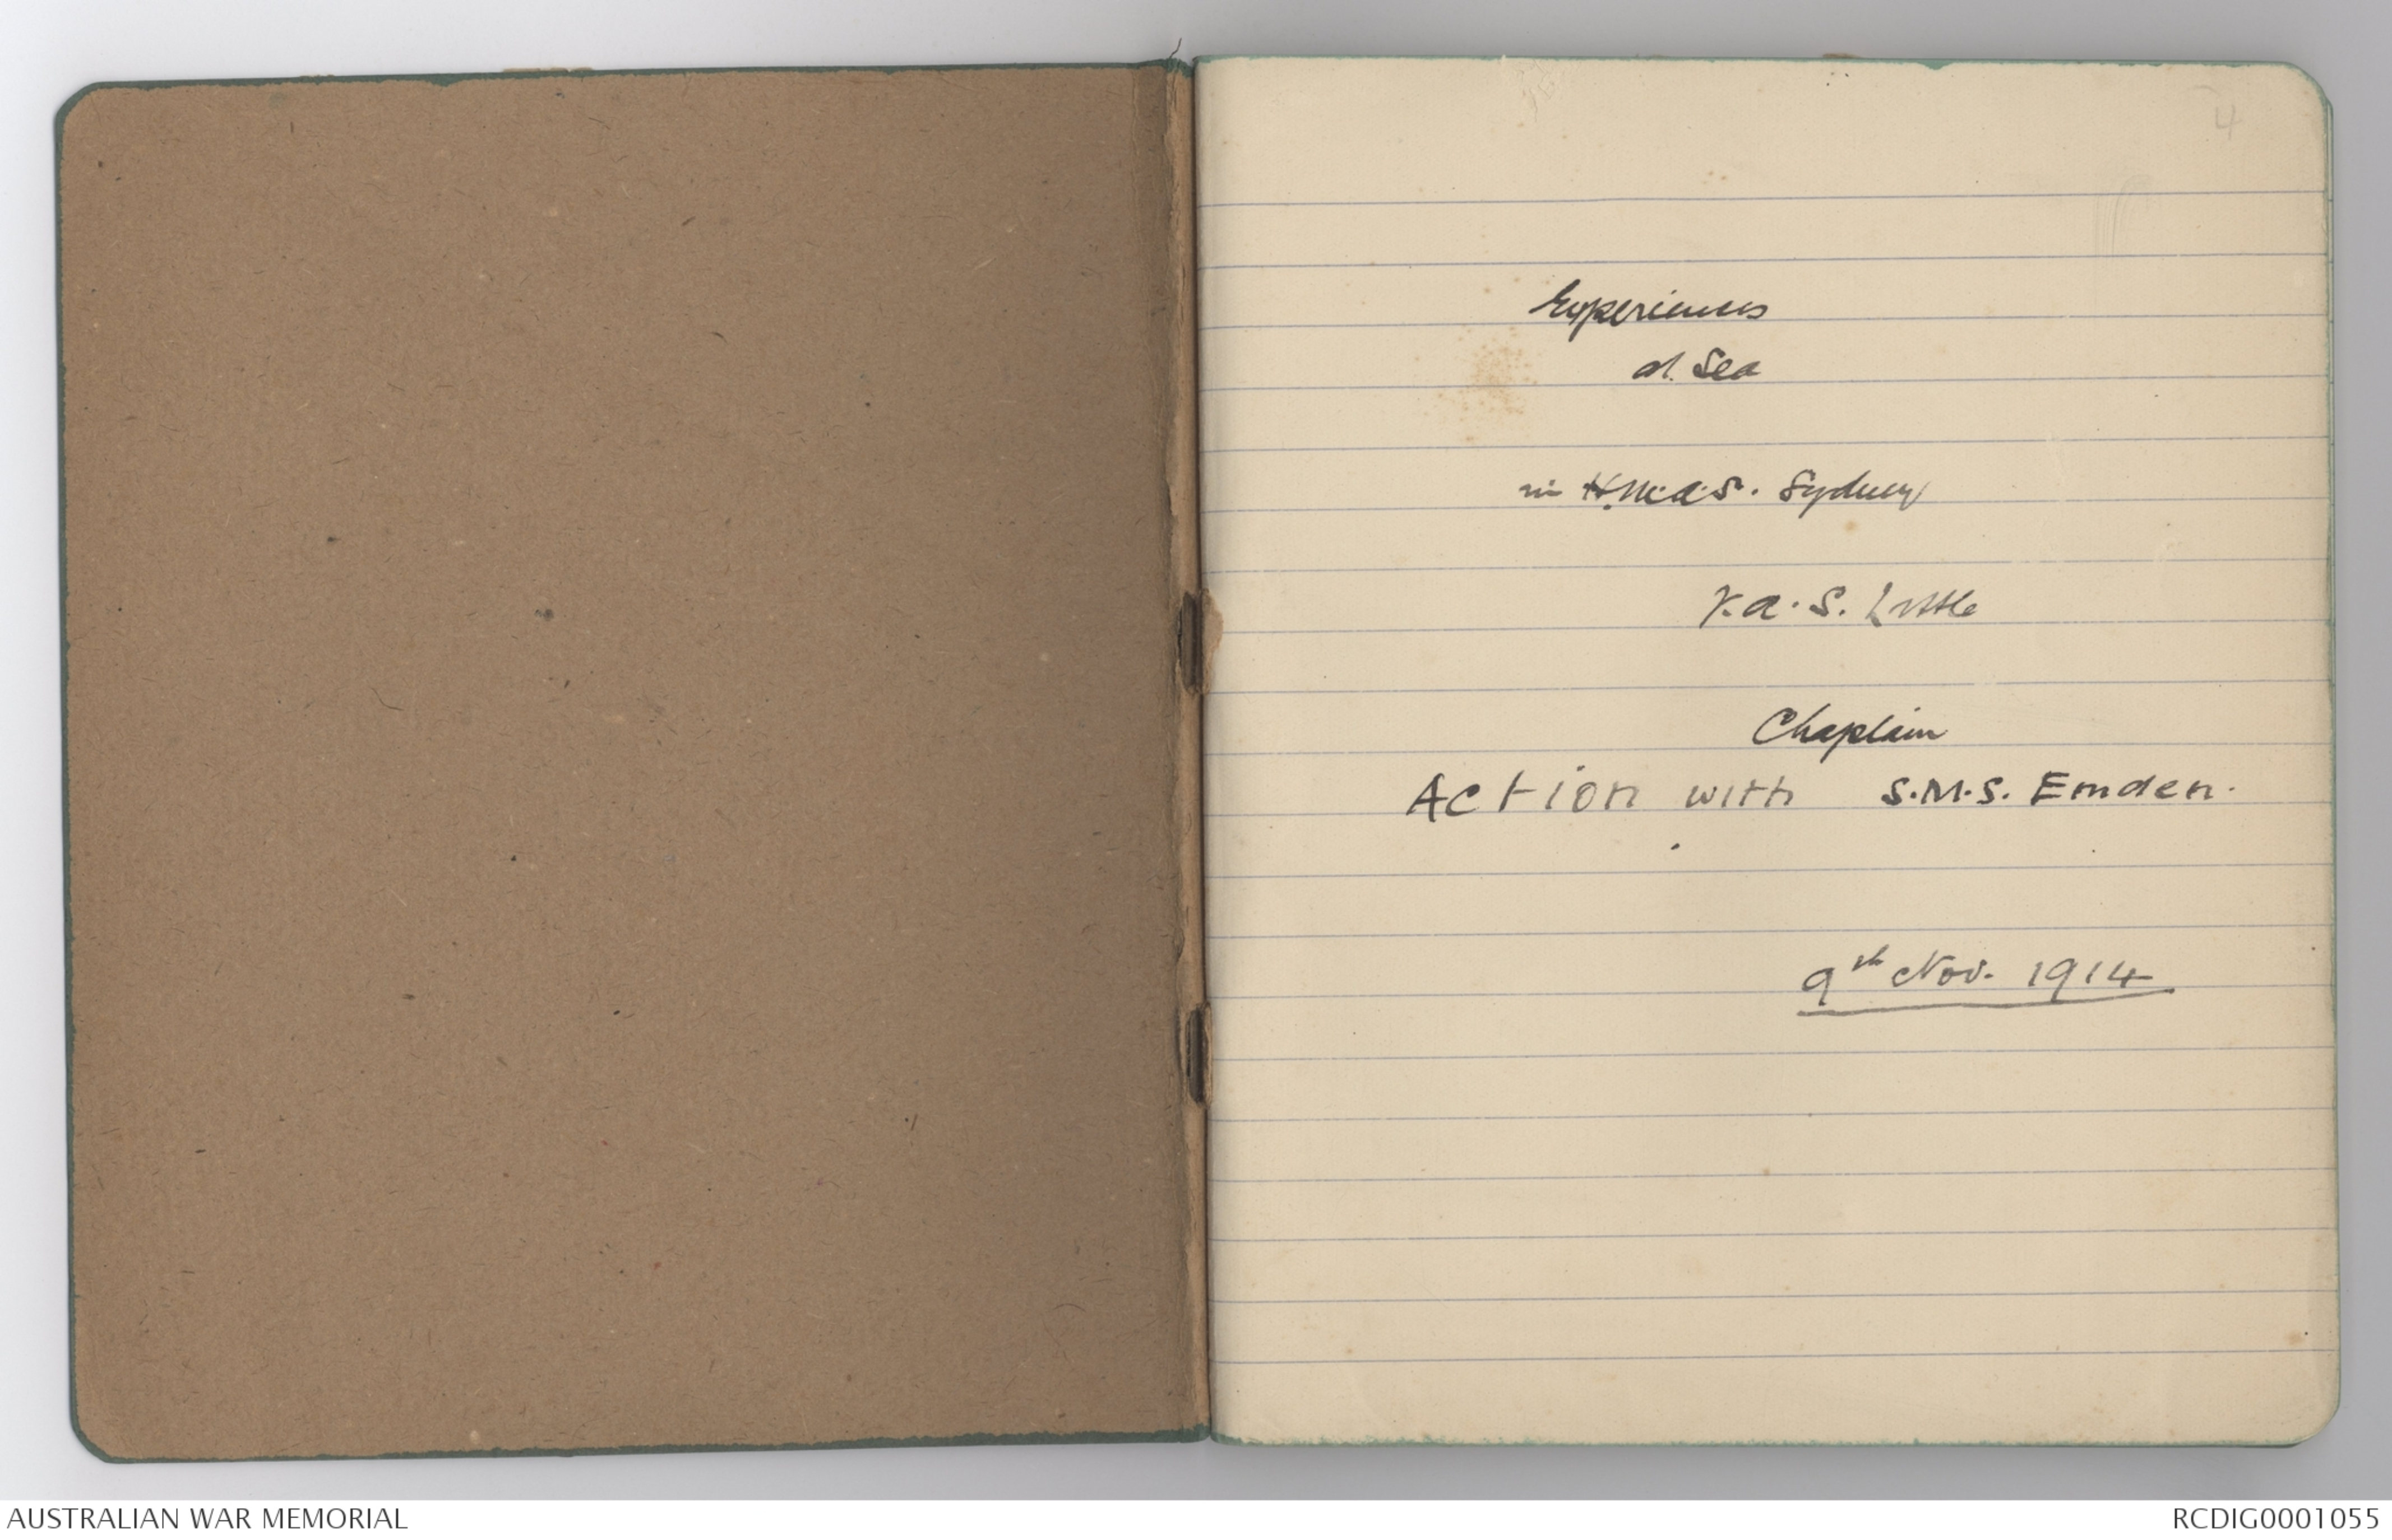 4
Experiences
at Sea
in H.M.A.S. Sydney
V.A.S. Little
Chaplain
Action with S.M.S. Emden.
9th Nov. 1914
AUSTRALIAN WAR MEMORIAL
RCDIG0001055